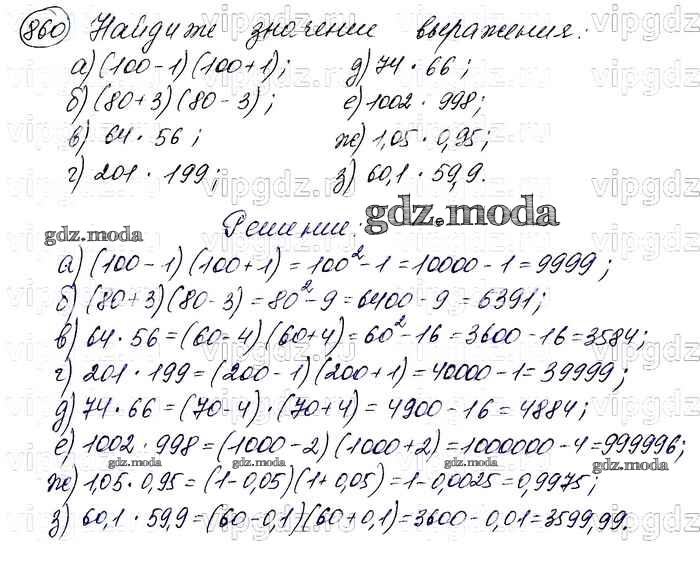 860 Найдите значение выражения:
а) (100-1)(100+1);
д) 74 · 66;
б) (80+3)(80-3);
е) 1002 · 998;
в) 64 · 56;
ж) 1,05 · 0,95;
г) 201 · 199;
з) 60,1 · 59,9.
Решение.
gdz.moda
gdz.moda
а) (100-1)(100+1) = 100² - 1 = 10000 - 1 = 9999;
б) (80+3)(80-3) = 80² - 9 = 6400 - 9 = 6391;
в) 64 · 56 = (60-4)(60+4) = 60² - 16 = 3600 - 16 = 3584;
г) 201 · 199 = (200-1)(200+1) = 40000 - 1 = 39999;
д) 74 · 66 = (70-4) · (70+4) = 4900 - 16 = 4884;
е) 1002 · 998 = (1000-2)(1000+2) = 1000000 - 4 = 999996;
gdz.moda gdz.moda gdz.moda
ж) 1,05 · 0,95 = (1-0,05)(1+0,05) = 1 - 0,0025 = 0,9975;
з) 60,1 · 59,9 = (60-0,1)(60+0,1) = 3600 - 0,01 = 3599,99.